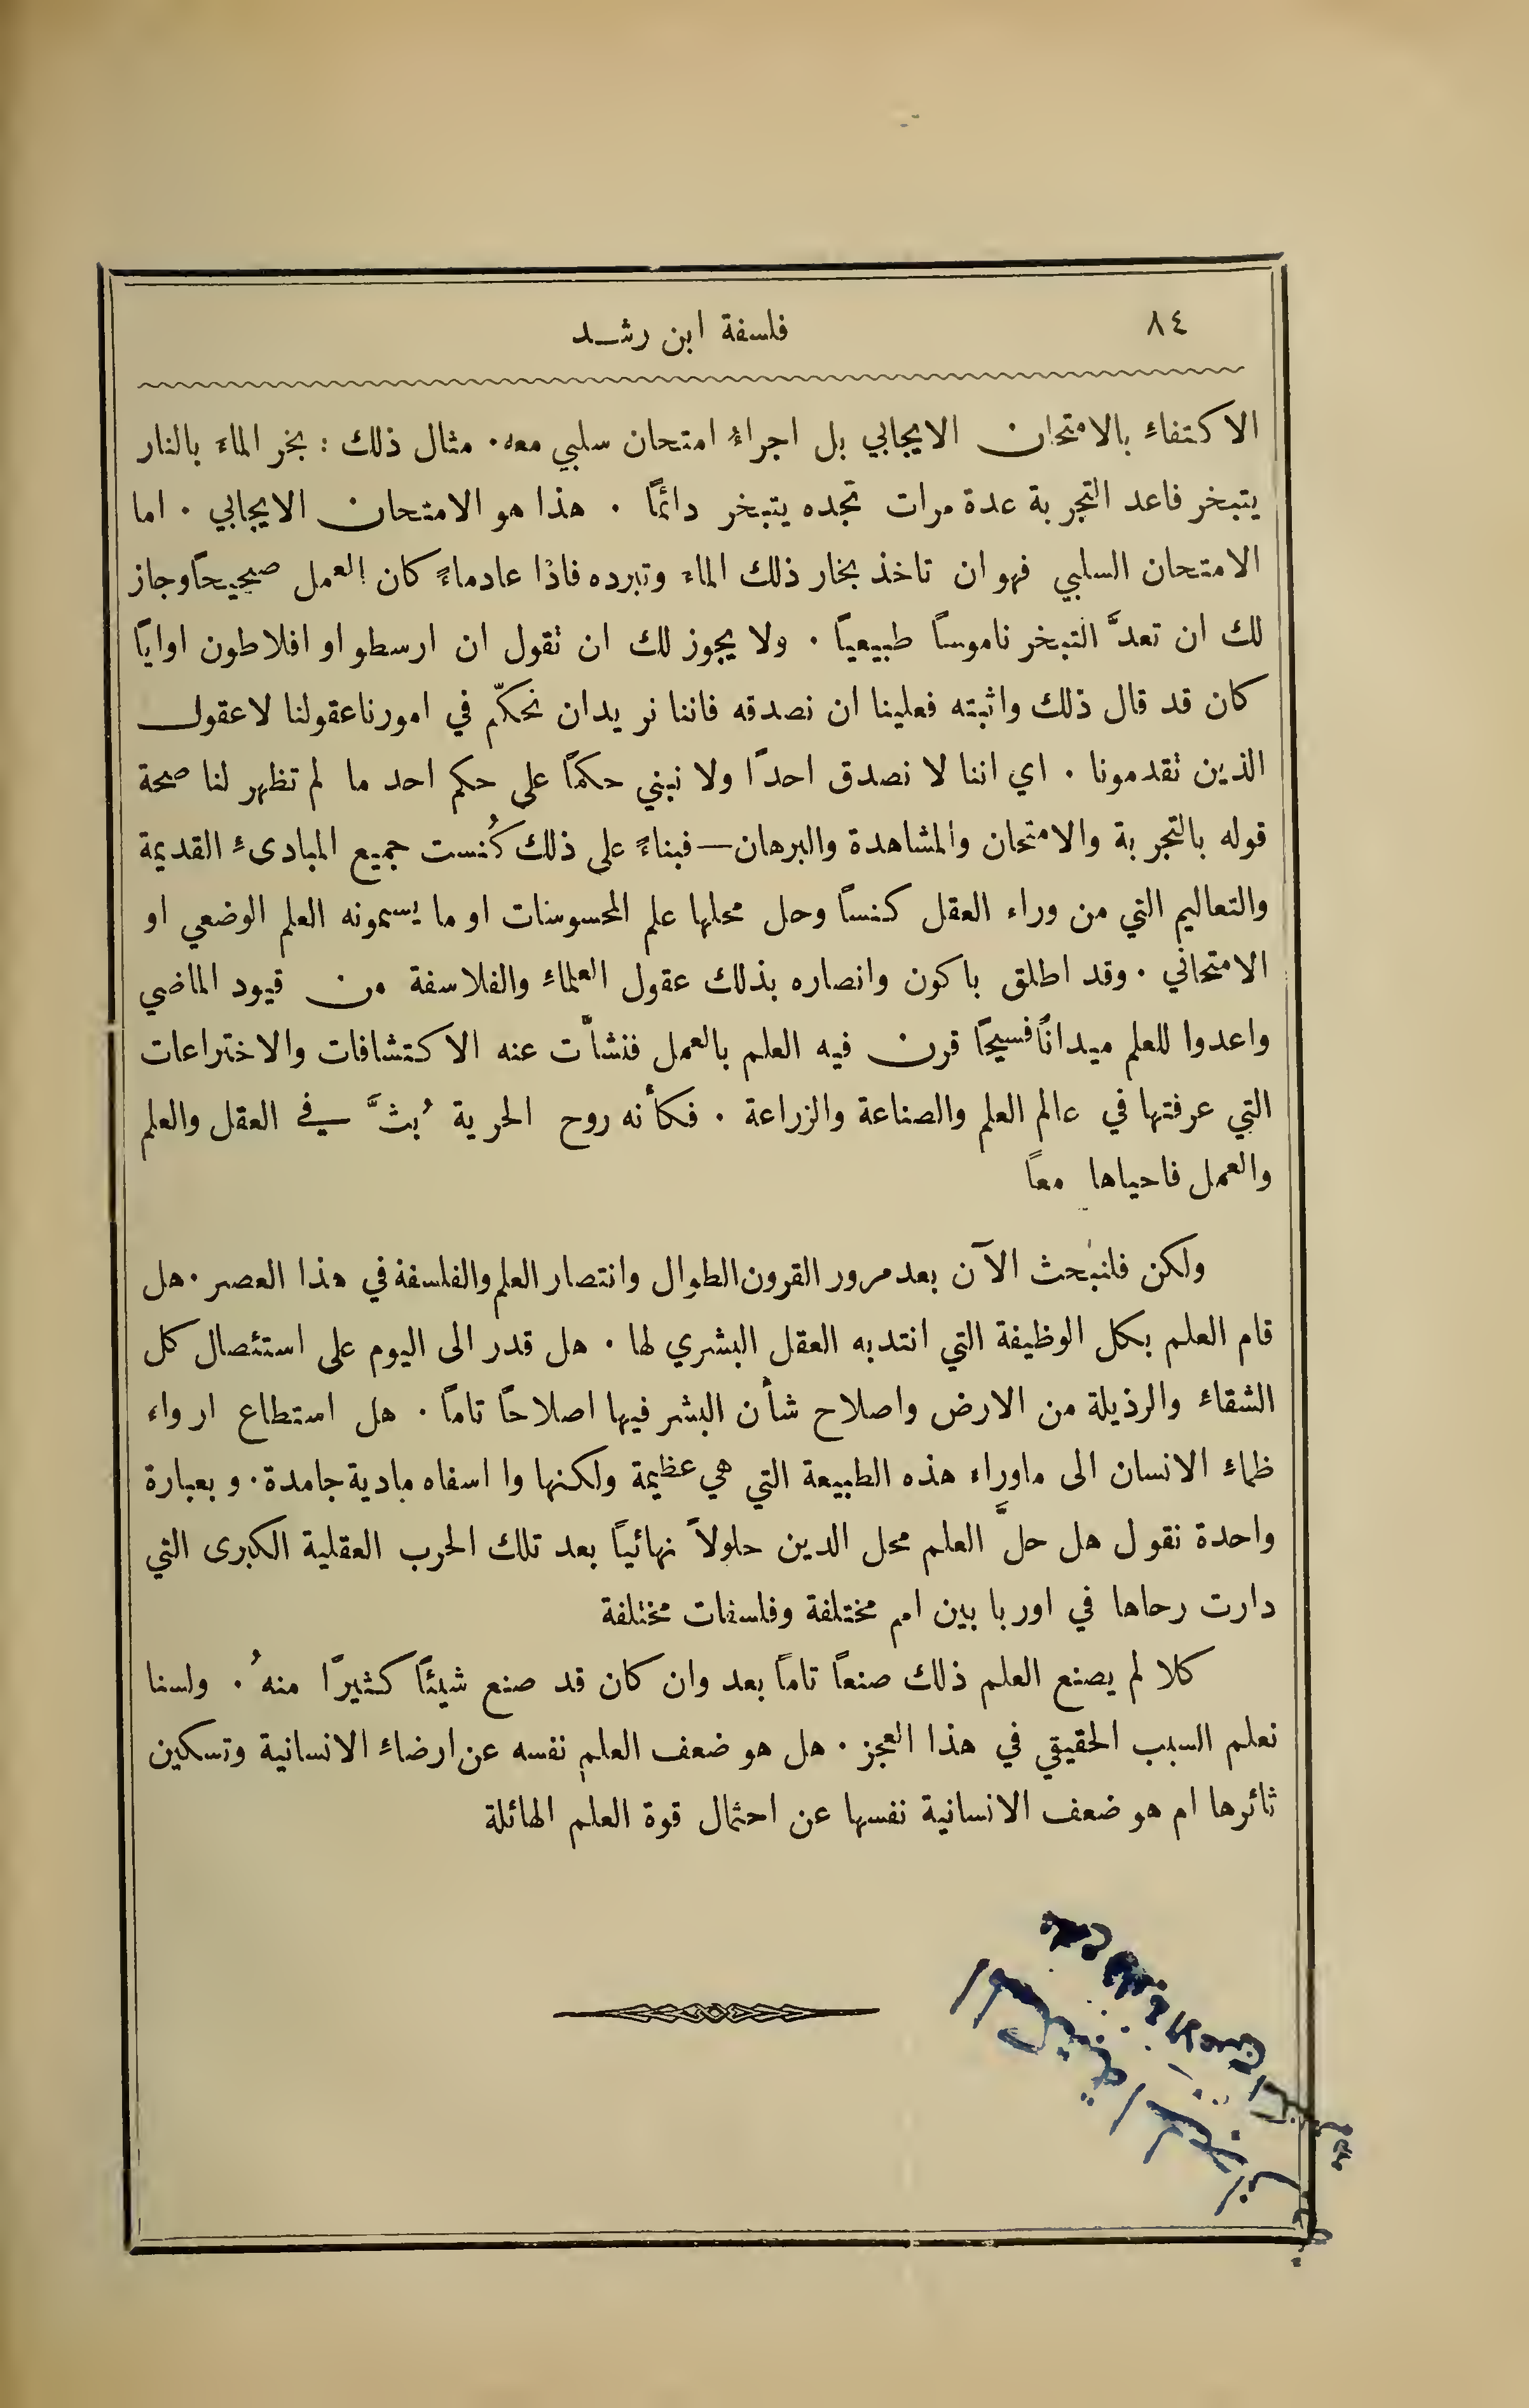 ٨٤
فلسفة ابن رشـد
الاكتفاءُ بالامتحان الايجابي بل اجراءُ امتحان سلبي معه. مثال ذلك : بخر الماءَ بالنار
يتبخر فاعد التجربة عدة مرات تجده يتبخر دائمًا . هذا هو الامتحان الايجابي . اما
الامتحان السلبي فهو ان تاخذ بخار ذلك الماء وتبرده فاذا عاد ماءً كان العمل صحيحًا وجاز
لك ان تعدَّ التبخر ناموسًا طبيعيًا . ولا يجوز لك ان تقول ان ارسطو او افلاطون او ايًا
كان قد قال ذلك واثبته فعلينا ان نصدقه فاننا نريد ان نحكّم في امورنا عقولنا لا عقول
الذين تقدمونا . اي اننا لا نصدق احدًا ولا نبني حكمًا على حكم احد ما لم تظهر لنا صحة
قوله بالتجربة والامتحان والمشاهدة والبرهان — فبناءً على ذلك كُنست جميع المبادىء القديمة
والتعاليم التي من وراء العقل كنسًا وحل محلها علم المحسوسات او ما يسمونه العلم الوضعي او
الامتحاني . وقد اطلق باكون وانصاره بذلك عقول العلماءُ والفلاسفة من قيود الماضي
واعدوا للعلم ميدانًا فسيحًا قرن فيه العلم بالعمل فنشأت عنه الاكتشافات والاختراعات
التي عرفتها في عالم العلم والصناعة والزراعة . فكأنه روح الحرية بُثَّ في العقل والعلم
والعمل فاحياها معًا
ولكن فلنبحث الآن بعد مرور القرون الطوال وانتصار العلم والفلسفة في هذا العصر . هل
قام العلم بكل الوظيفة التي انتدبه العقل البشري لها . هل قدر الى اليوم على استئصال كل
الشقاءُ والرذيلة من الارض واصلاح شأن البشر فيها اصلاحًا تامًا . هل استطاع ارواء
ظماءُ الانسان الى ماوراء هذه الطبيعة التي هي عظيمة ولكنها وا اسفاه مادية جامدة . وبعبارة
واحدة نقول هل حلَّ العلم محل الدين حلولاً نهائيًا بعد تلك الحرب العقلية الكبرى التي
دارت رحاها في اوربا بين امم مختلفة وفلسفات مختلفة
كلا لم يصنع العلم ذلك صنعًا تامًا بعد وان كان قد صنع شيئًا كثيرًا منهُ . ولسنا
نعلم السبب الحقيقي في هذا العجز . هل هو ضعف العلم نفسه عن ارضاءُ الانسانية وتسكين
ثائرها ام هو ضعف الانسانية نفسها عن احتمال قوة العلم الهائلة